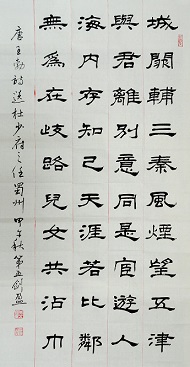 城闕輔三秦風煙望五津
與君離別意同是宦遊人
海內存知己天涯若比鄰
無為在歧路兒女共沾巾
唐王勃詩送杜少府之任蜀州 甲午秋